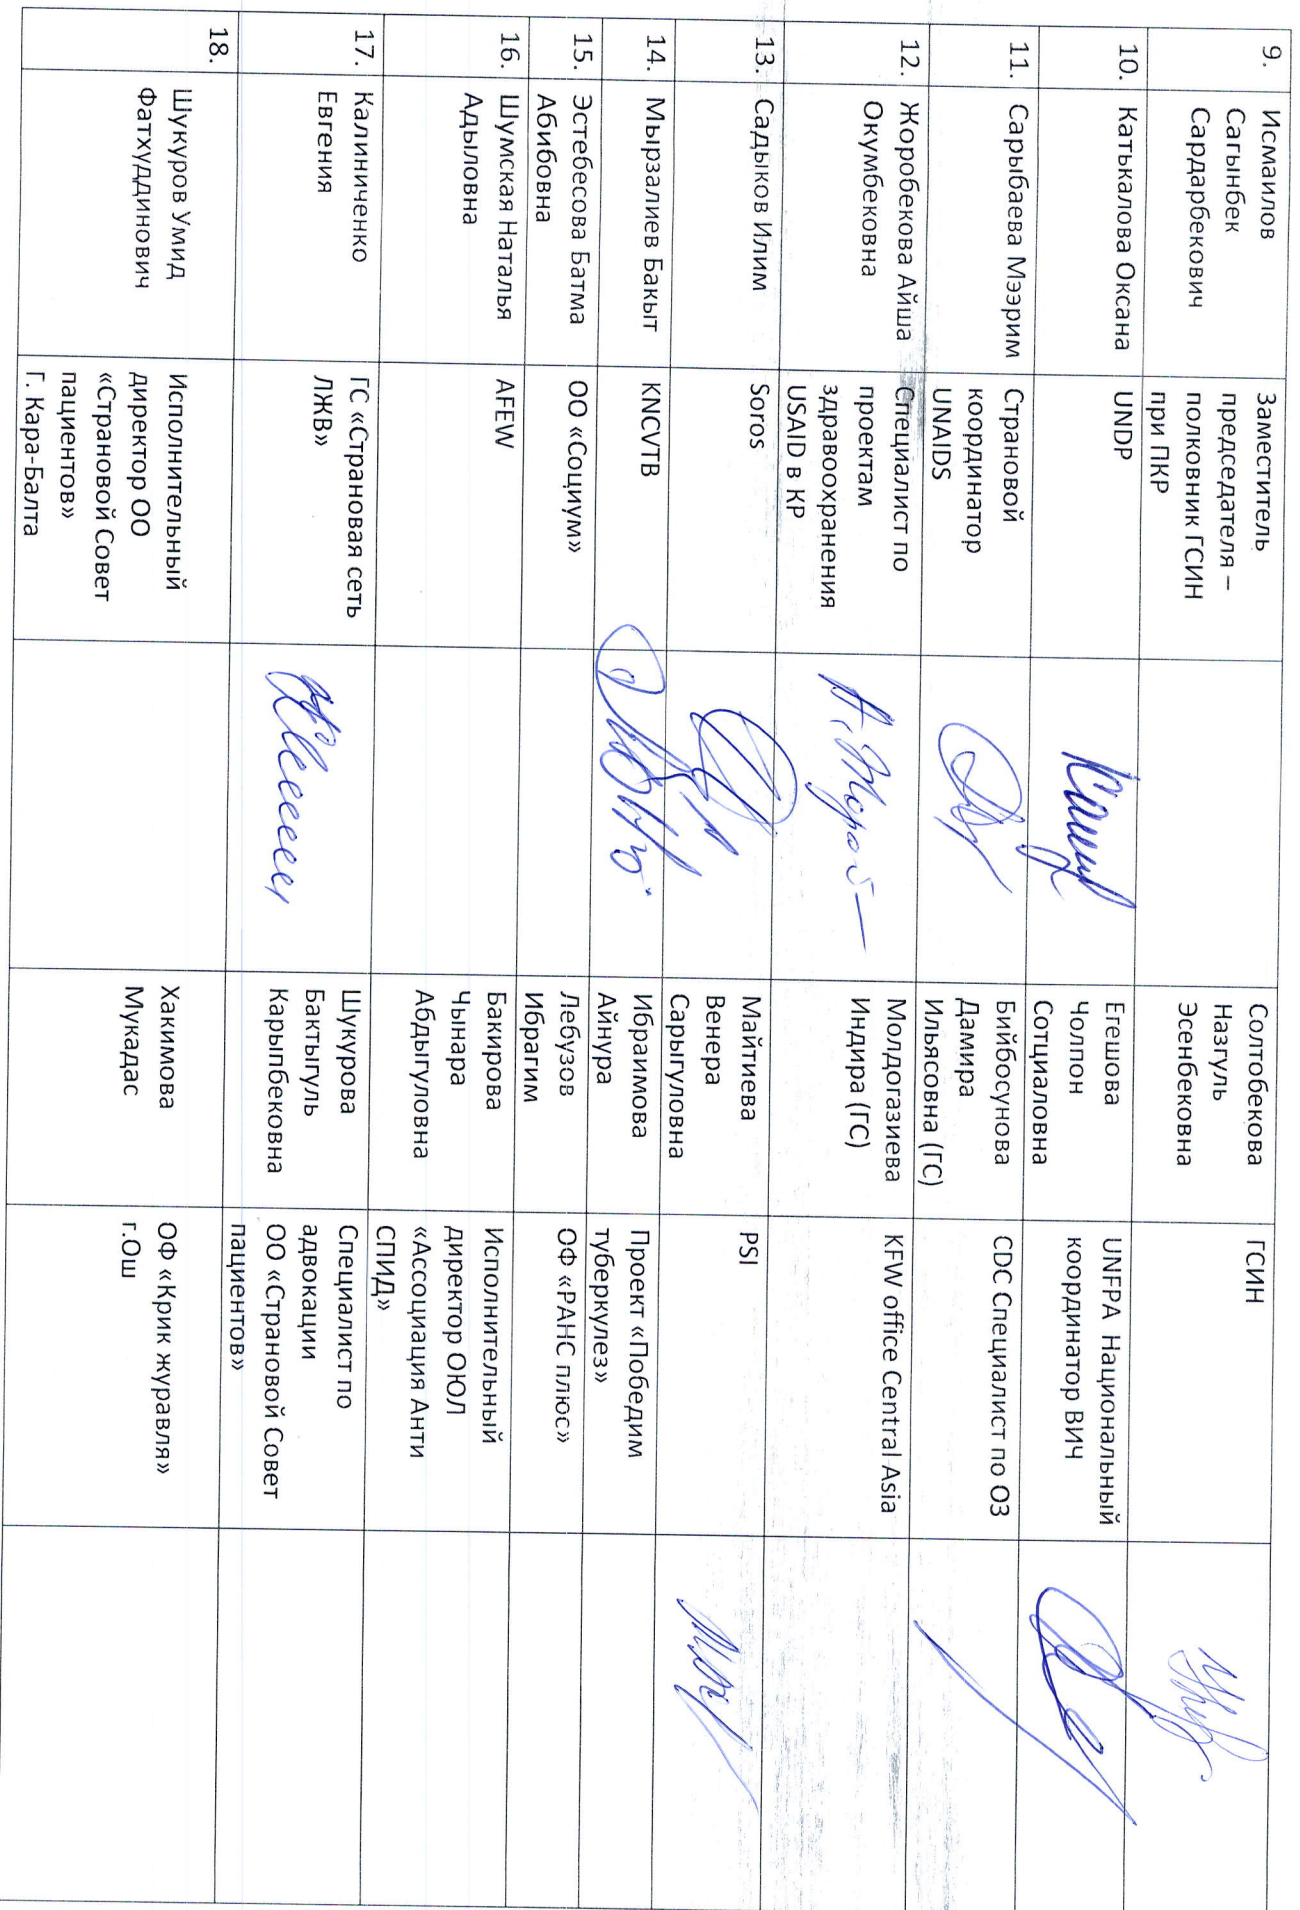 9.
Исмаилов
Сагынбек
Сардарбекович
Заместитель
председателя –
полковник ГСИН
при ПКР
Солтобекова
Назгуль
Эсенбековна
ГСИН
10.
Катькалова Оксана
UNDP
Егешова
Чолпон
Сотциаловна
UNFPA Национальный
координатор ВИЧ
11.
Сарыбаева Мээрим
Страновой
координатор
UNAIDS
Бийбосунова
Дамира
Ильясовна (ГС)
CDC Специалист по ОЗ
12.
Жоробекова Айша
Окумбековна
Специалист по
проектам
здравоохранения
USAID в КР
Молдогазиева
Индира (ГС)
KFW office Central Asia
13.
Садыков Илим
Soros
Майтиева
Венера
Сарыгуловна
PSI
14.
Мырзалиев Бакыт
KNCVTB
Ибраимова
Айнура
Проект «Победим
туберкулез»
15.
Эстебесова Батма
Абибовна
ОО «Социум»
Лебузов
Ибрагим
ОФ «РАНС плюс»
16.
Шумская Наталья
Адыловна
AFEW
Бакирова
Чынара
Абдыгуловна
Исполнительный
директор ОЮЛ
«Ассоциация Анти
СПИД»
17.
Калиниченко
Евгения
ГС «Страновая сеть
ЛЖВ»
Шукурова
Бактыгуль
Карыпбековна
Специалист по
адвокации
ОО «Страновой Совет
пациентов»
18.
Шукуров Умид
Фатхуддинович
Исполнительный
директор ОО
«Страновой Совет
пациентов»
Г. Кара-Балта
Хакимова
Мукадас
ОФ «Крик журавля»
г.Ош